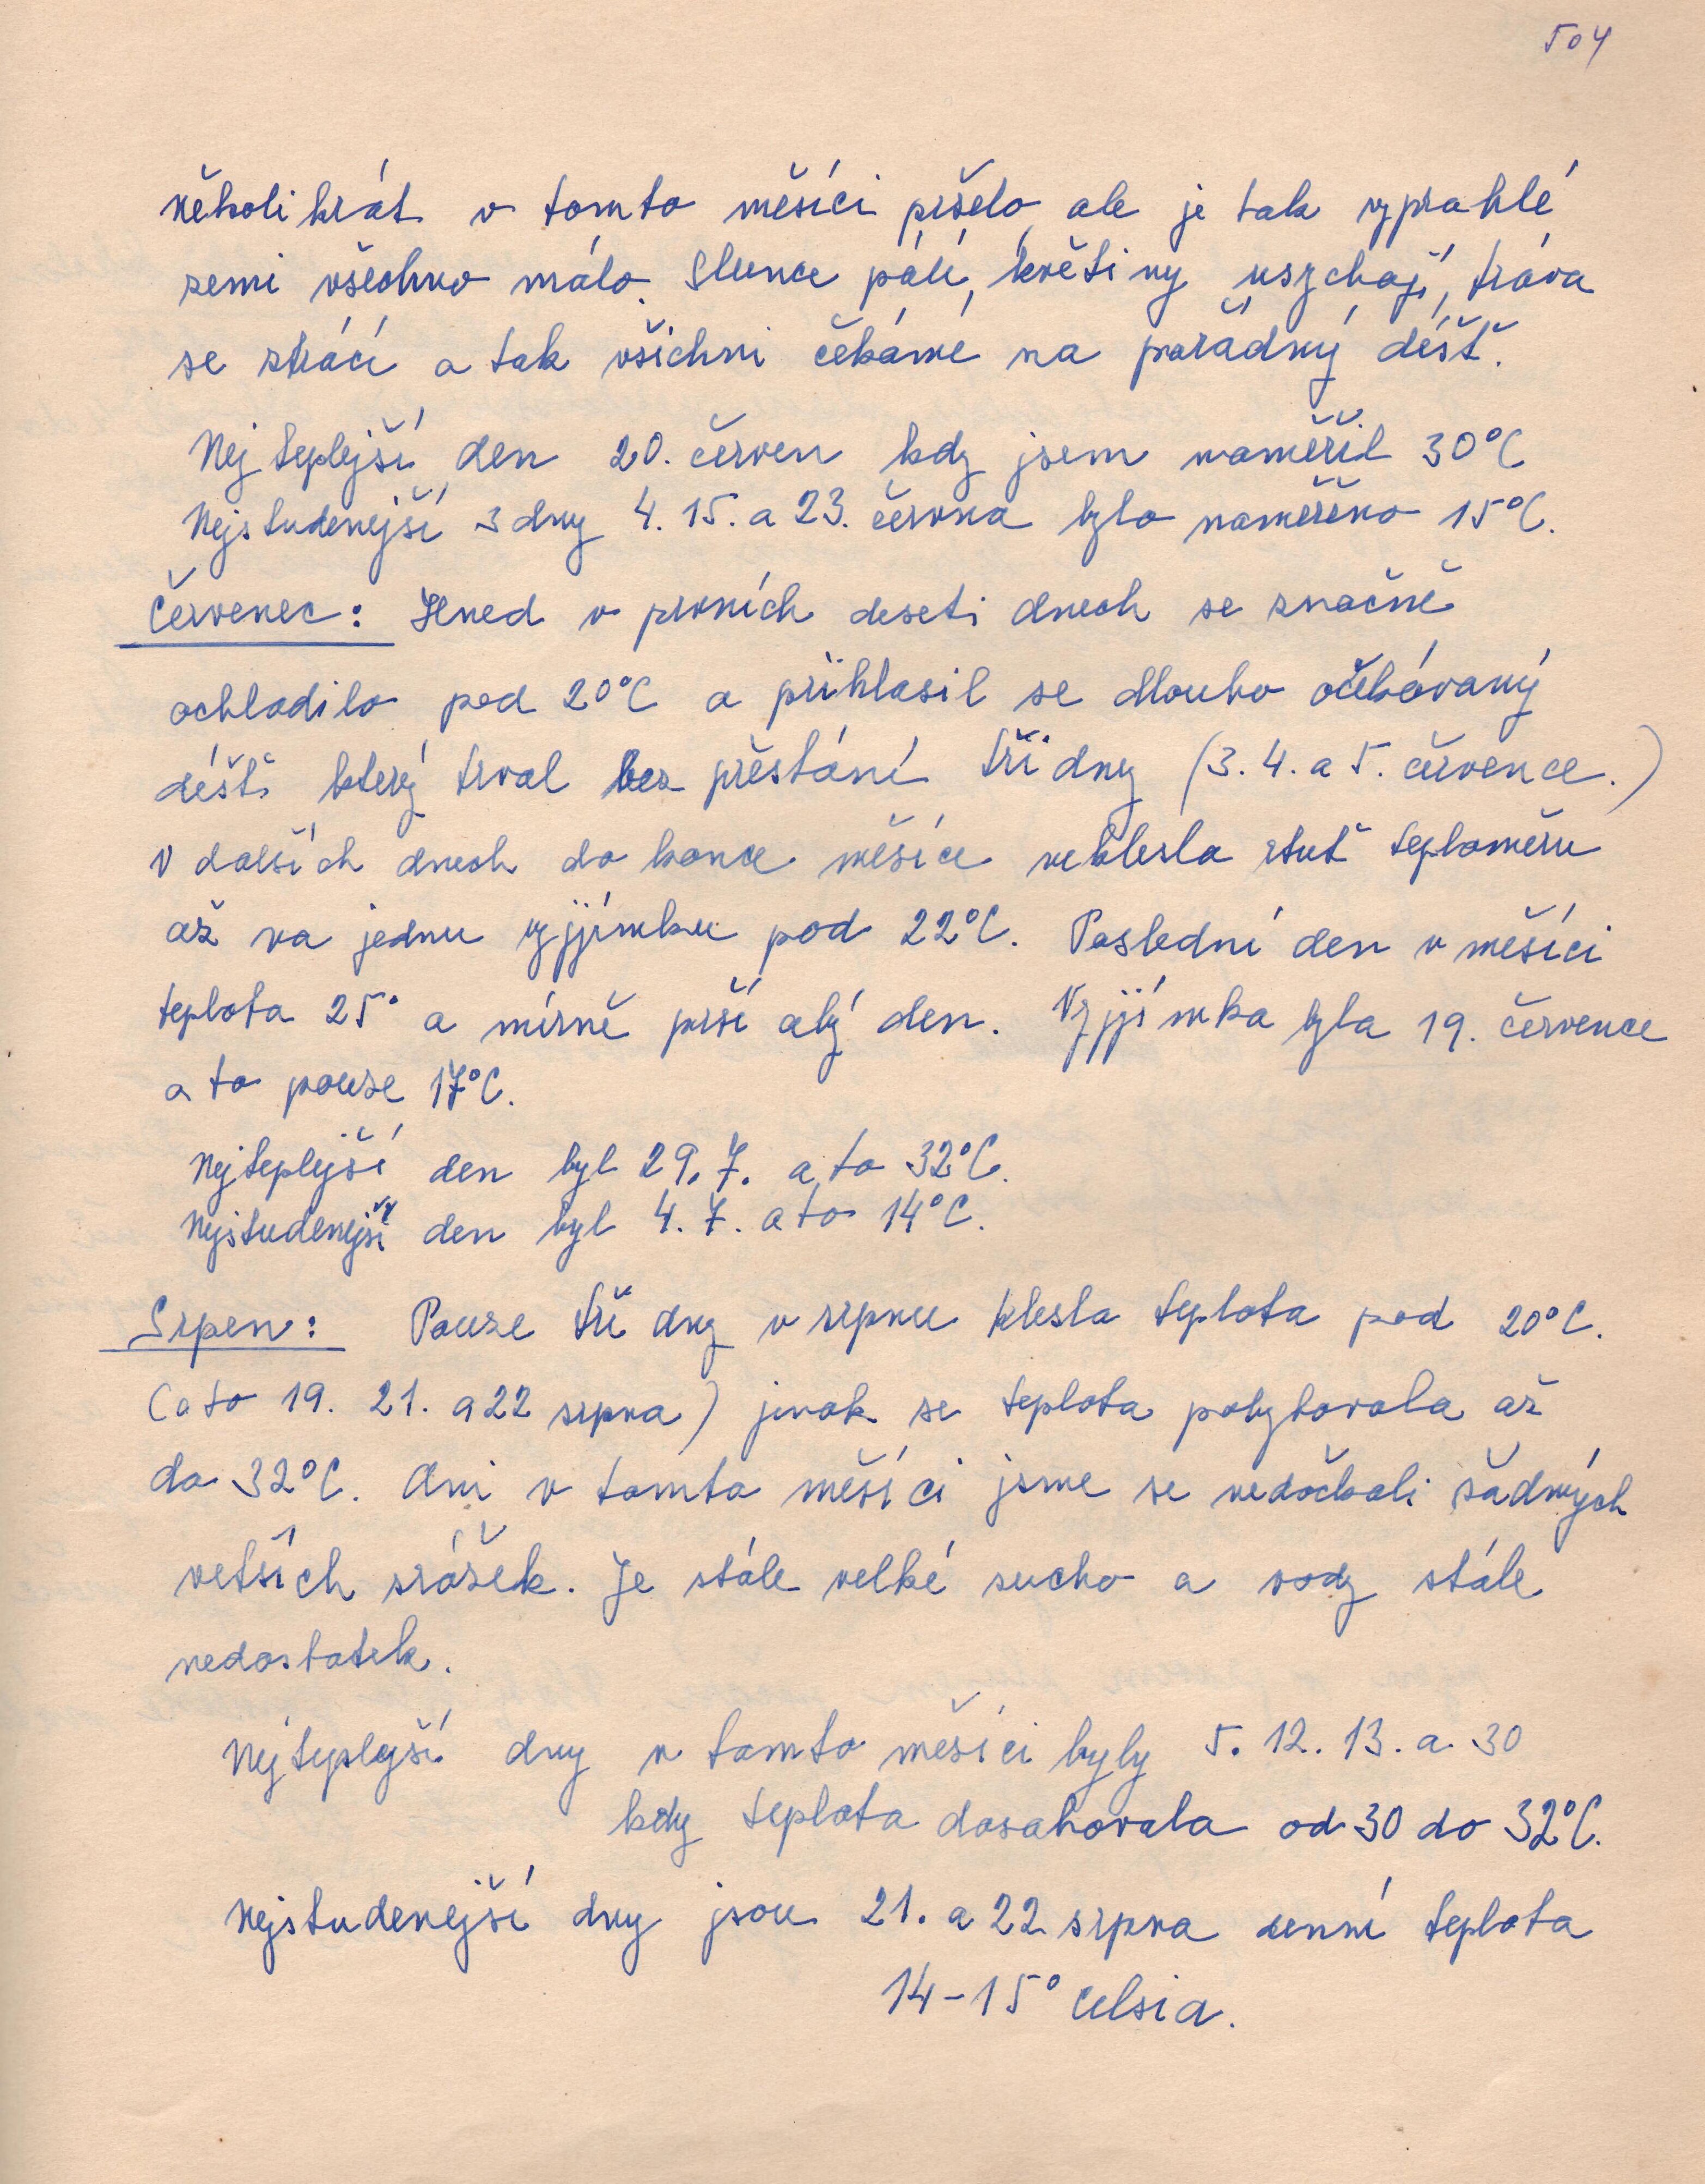 504
několikrát v tomto měsíci pršelo, ale je tak vyprahlé
zemi všechno málo. Slunce pálí, květiny usychají, tráva
se ztrácí a tak všichni čekáme na pořádný déšť.
Nejteplejší den 20. červen kdy jsem naměřil 30°C
Nejstudenejší 3 dny 4. 15. a 23. června bylo naměřeno 15°C.
Červenec: Hned v prvních deseti dnech se značně
ochladilo pod 20°C a přihlasil se dlouho očekávaný
déšť který trval bez přestání tři dny (3. 4. a 5. července.)
V dalších dnech do konce měsíce neklesla rtuť teploměru
až na jednu vyjjímku pod 22°C. Poslední den v měsíci
teplota 25° a mírně prší celý den. Vyjjímka byla 19. července
a to pouze 17°C.
Nejteplejší den byl 29. 7. a to 32°C.
Nejstudenejší den byl 4. 7. a to 14°C.
Srpen: Pouze tři dny v srpnu klesla teplota pod 20°C.
(a to 19. 21. a 22 srpna) jinak se teplota pohybovala až
do 32°C. Ani v tomto měsíci jsme se nedočkali žádných
vetších srážek. Je stále velké sucho a vody stále
nedostatek.
Nejteplejší dny v tomto měsíci byly 5. 12. 13. a. 30
kdy teplota dosahovala od 30 do 32°C.
Nejstudenejší dny jsou 21. a 22 srpna denní teplota
14-15° celsia.